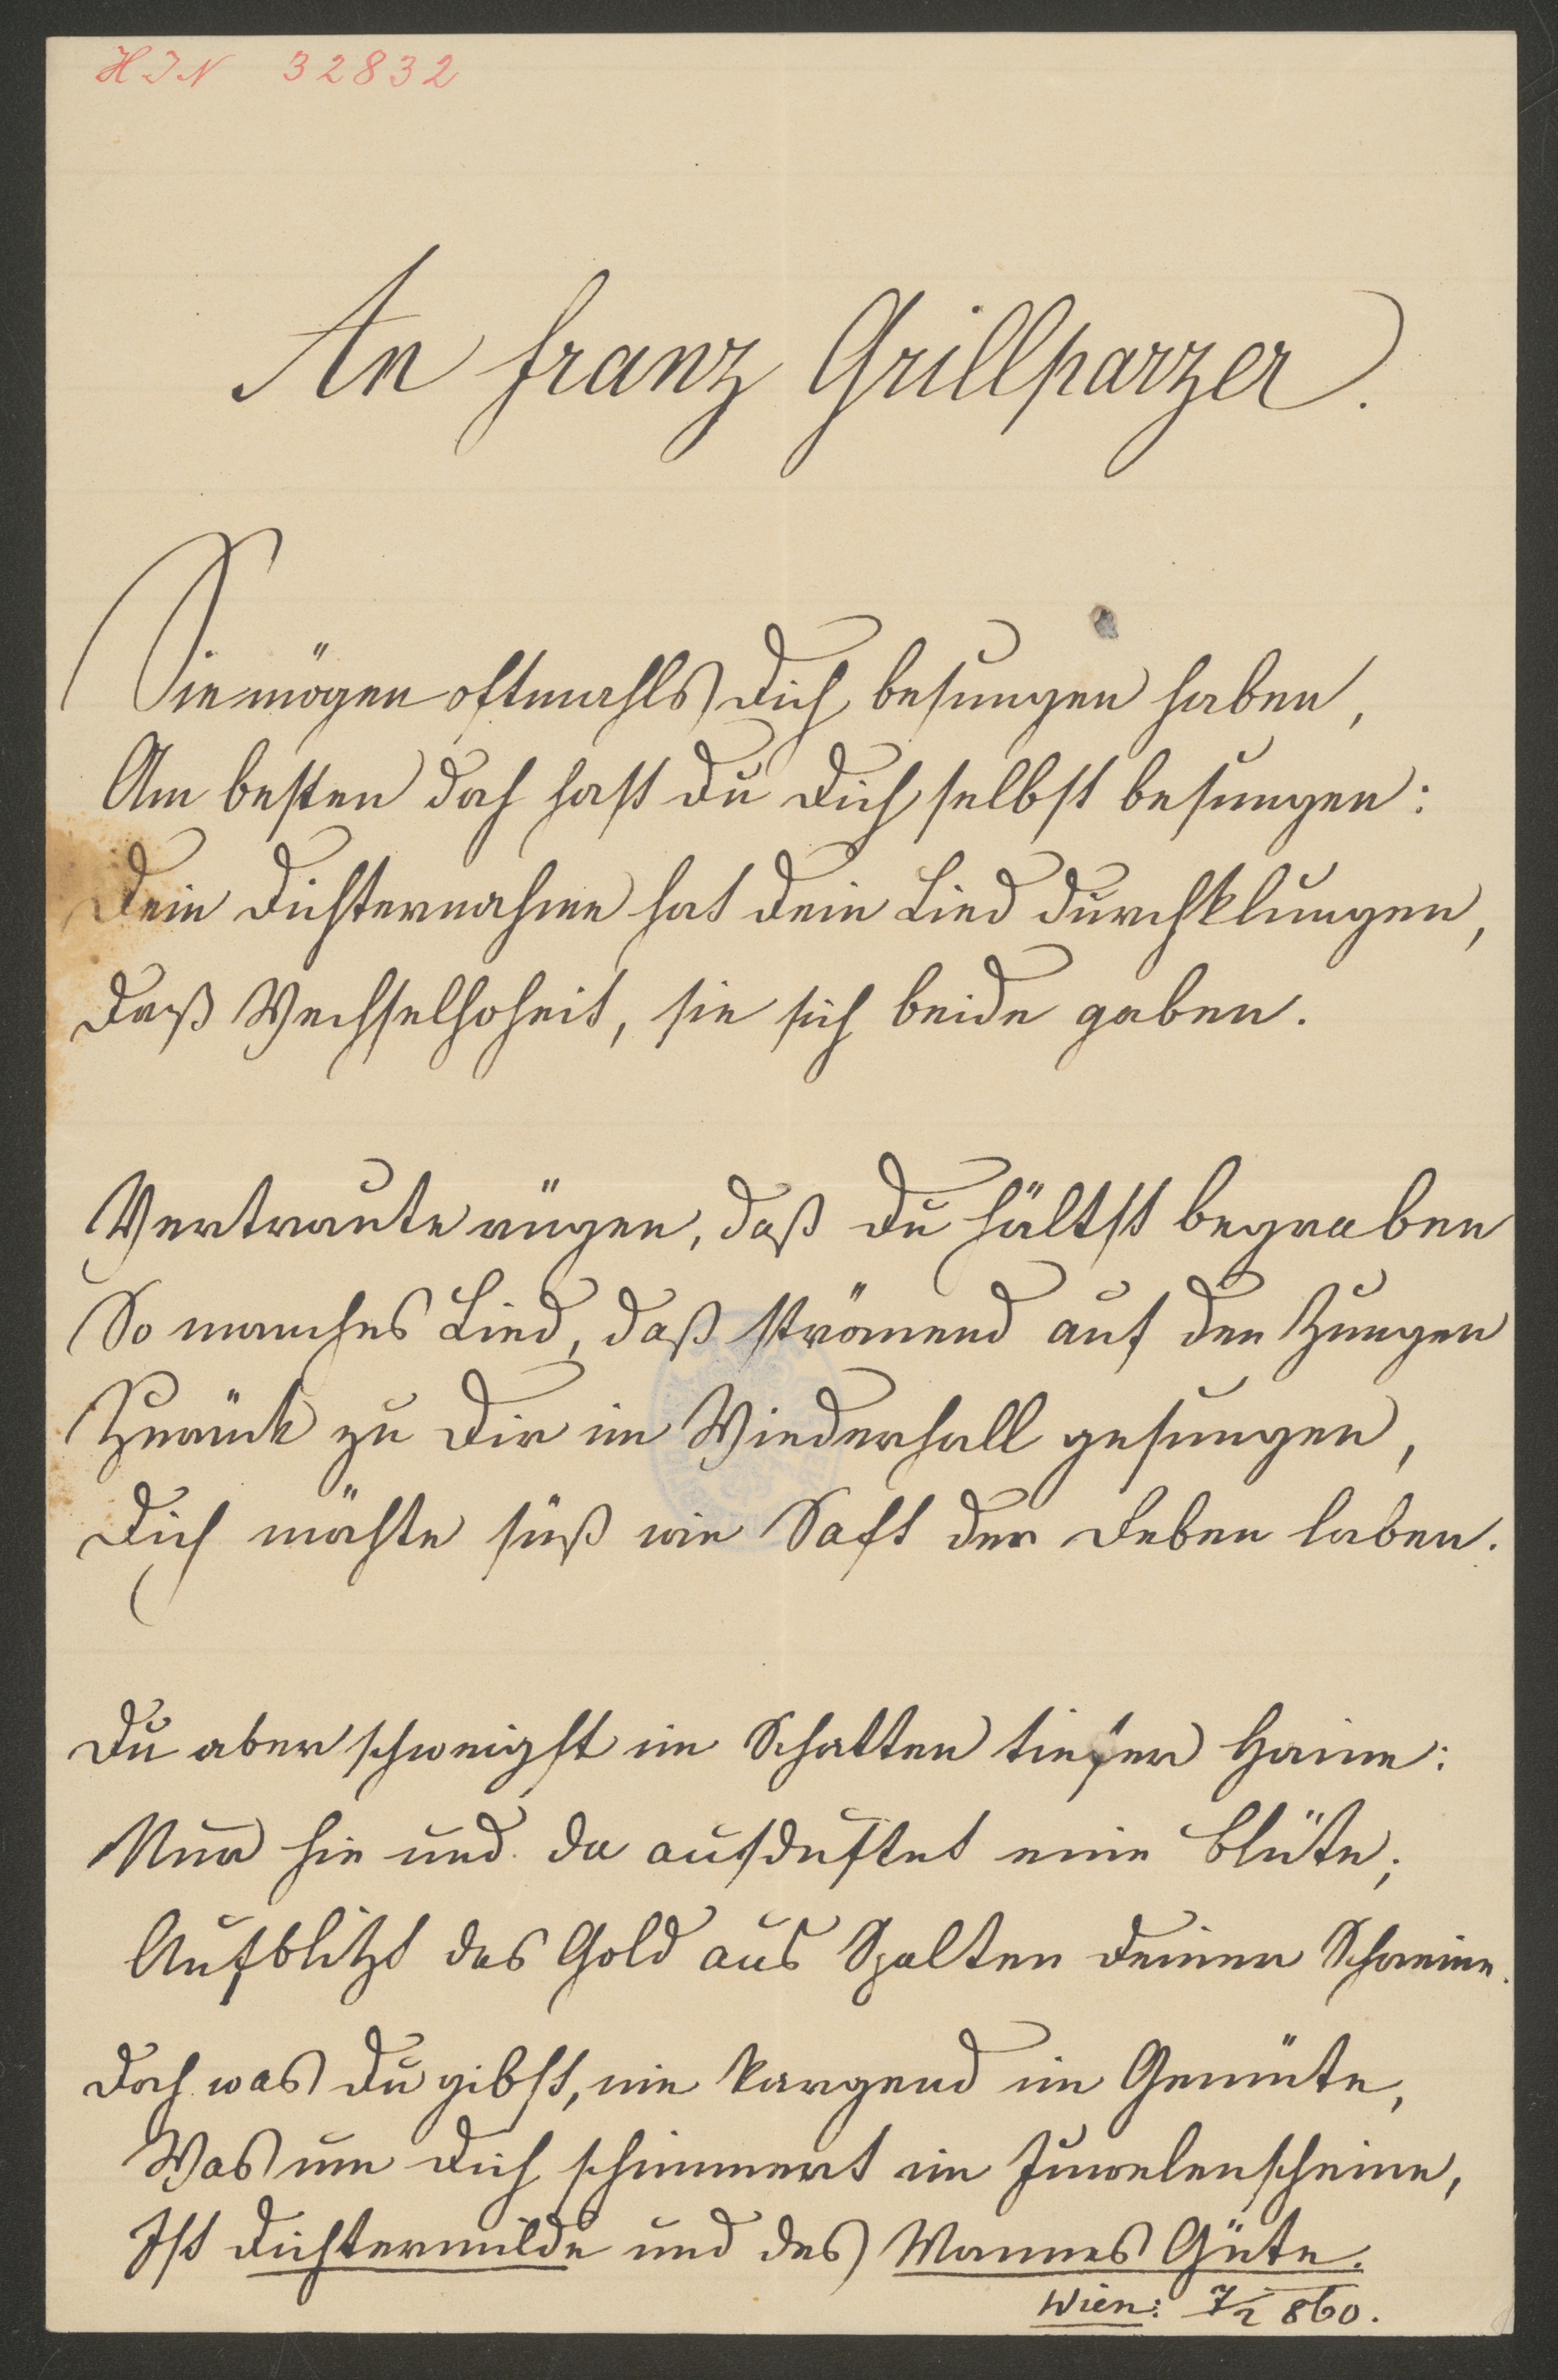 HIN 32832
An Franz Grillparzer.
Sie mögen oftmahls Dich besungen haben,
Am besten doch hast Du Dich selbst besungen:
Dein Dichternahme hat Dein Lied durchklungen,
Daß Wechselhoheit, sie sich beide gaben.
Vertraute rügen, daß Du hältst begraben
So manches Lied, daß strömend auf den Zungen
Zurück zu Dir im Wiederhall gesungen,
Dich möchte süß wie Saft der Reben laben.
Du aber schweigst im Schatten tiefer Haine:
Nur hie und da ausduftet eine Blüte;
Aufblitzt das Gold aus Spalten Deiner Schreine.
Doch was Du gibst, nie kargend im Gemüte,
Was um Dich schimmert im Juwelenscheine,
Ist Dichtermilde und des Mannes Güte.
Wien: 7/2 860.